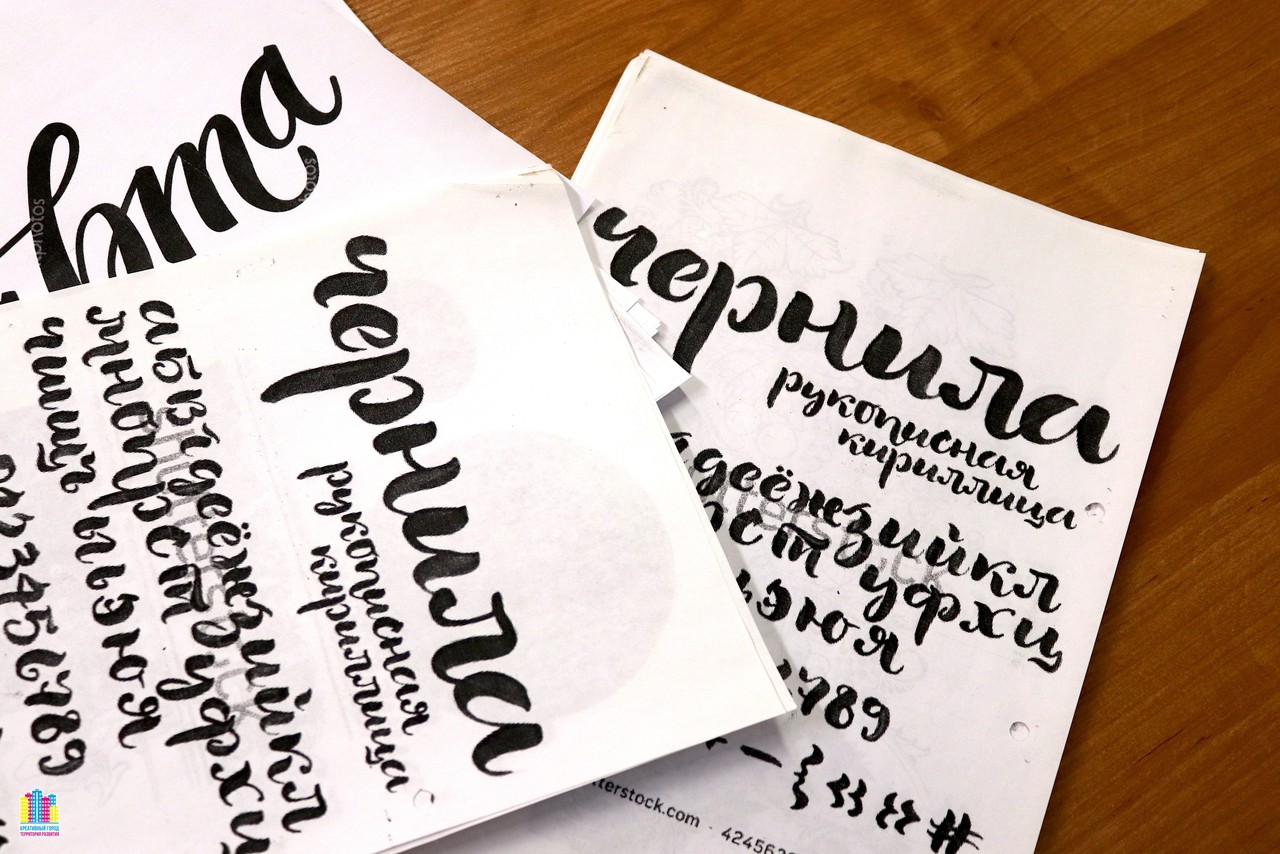 чернила
рукописная
кириллица
абвгдеёжзийкл
мнопрстуфхц
чшщъыьэюя
0123456789
чернила
рукописная
кириллица
деёжзийкл
рстуфхц
ьэюя
789
- { « » #
terstock.com · 424563
photos
photos
КРЕАТИВНЫЙ ГОРОД
ТЕРРИТОРИЯ РАЗВИТИЯ